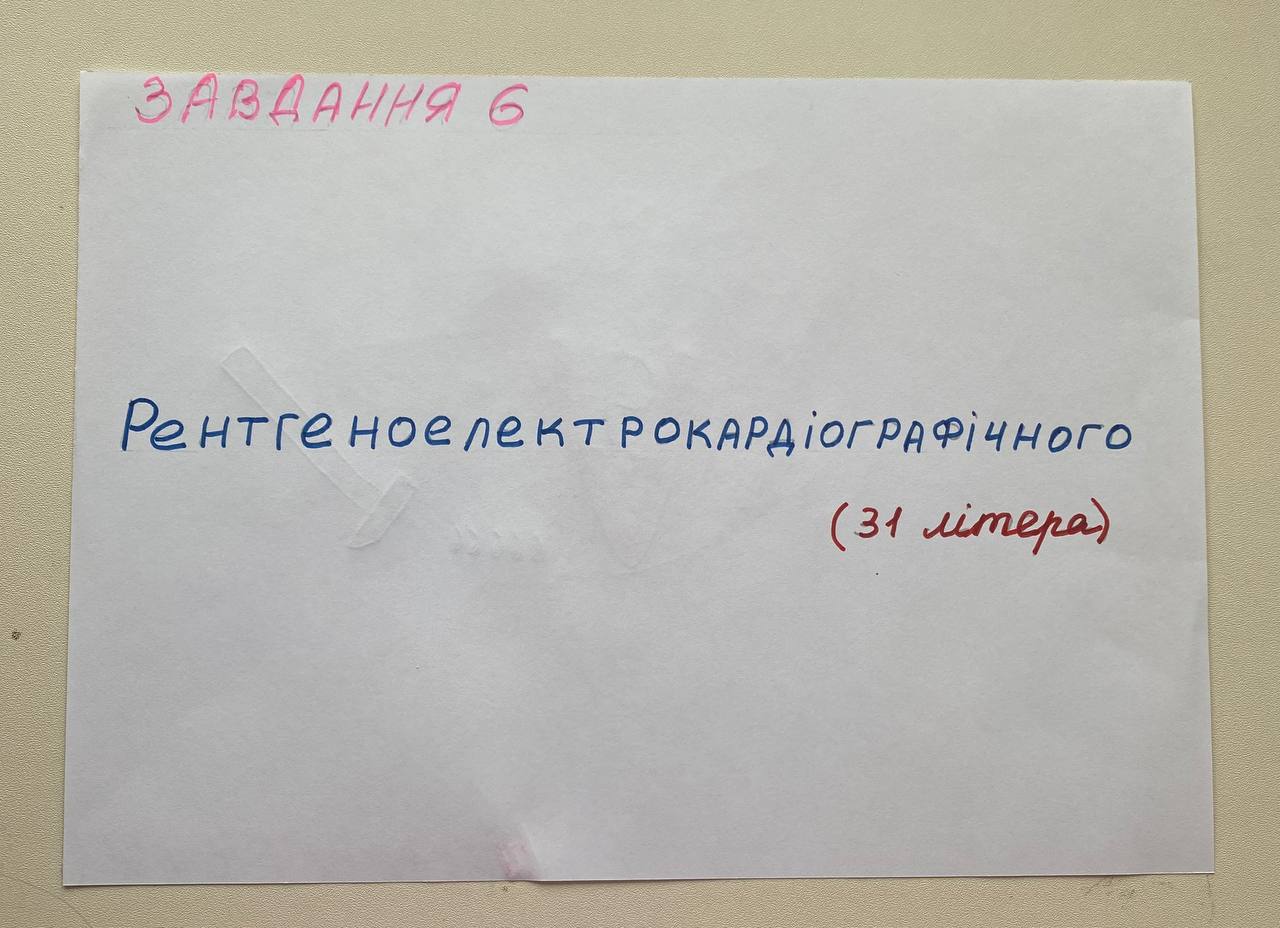 ЗАВДАННЯ 6
Рентгеноелектрокардіографічного
(31 літера)